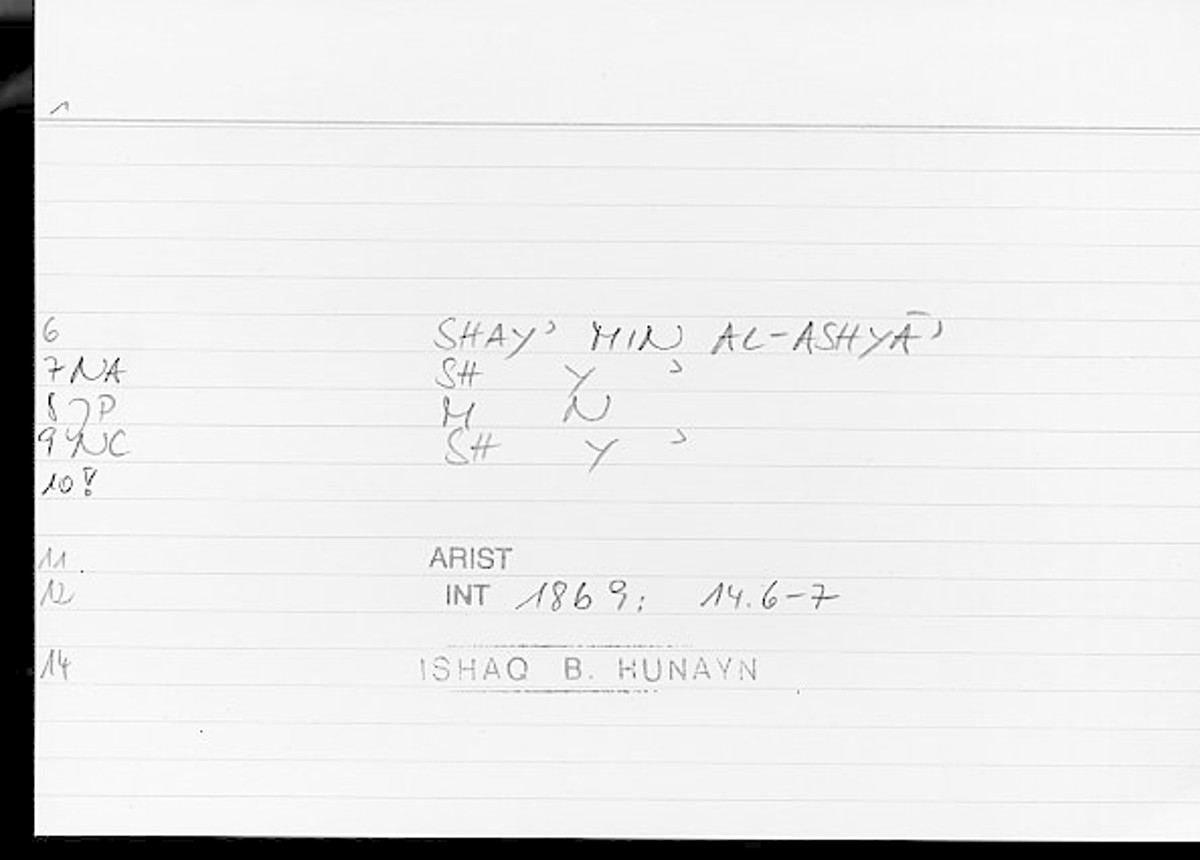 1
6 SHAY' MIN AL-ASHYĀ'
7 NA SH Y '
8 P M N
9 NC SH Y '
10 !
11 ARIST
12 INT 1869: 14.6-7
14 ISHAQ B. HUNAYN